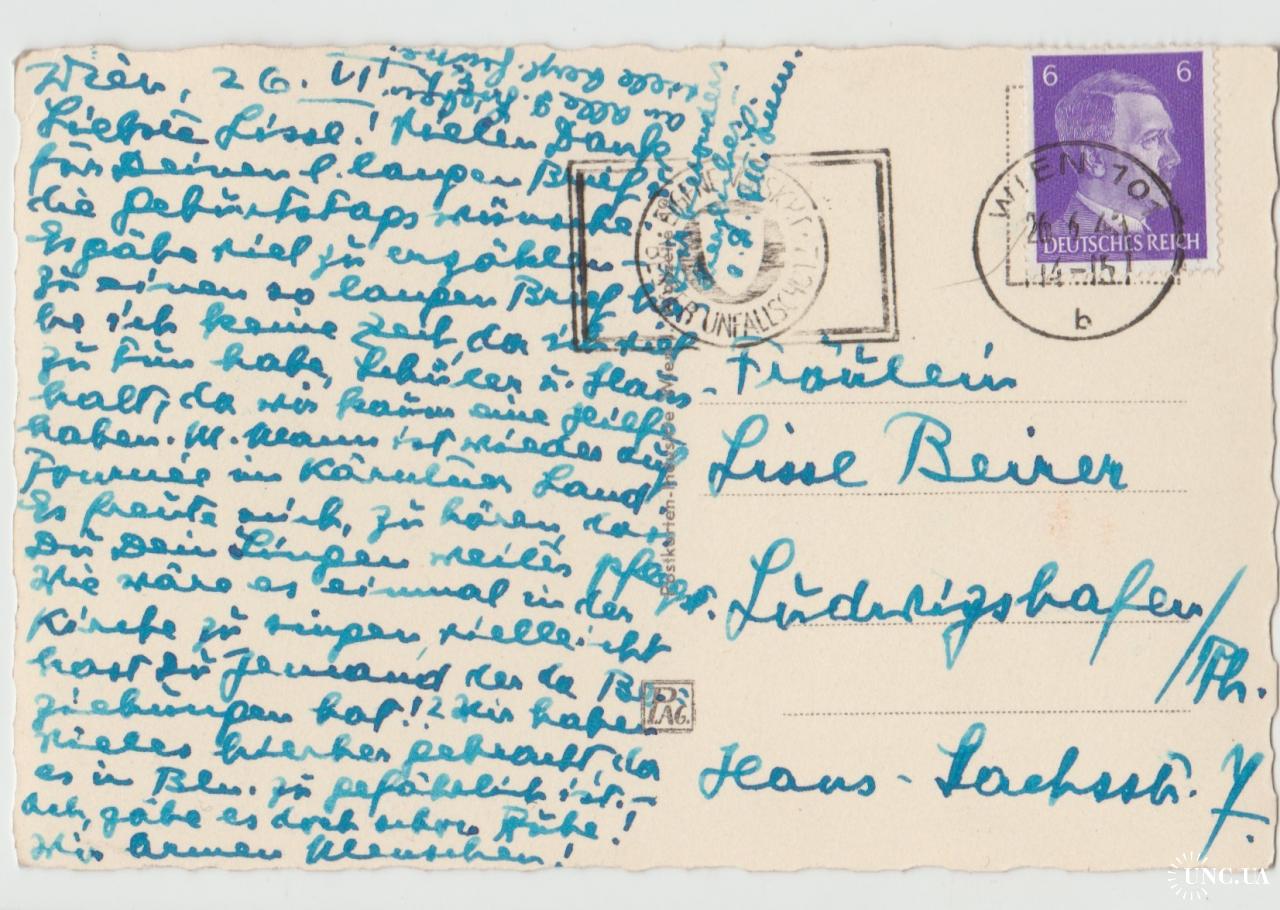 Wien, 26. VI. 43.
Liebste Lisse! Vielen Dank
für Deinen l. langen Brief u.
die Geburtstagswünsche
Es gäbe viel zu erzählen –
zu einem so langen Brief ha-
be ich keine Zeit da ich viel
zu tun habe, Schüler u. Haus-
halt, da wir kaum eine Hilfe
haben. M. Mann ist wieder auf
Tournée im Kärntner Land
Es freute mich, zu hören, dass
Du Dein Singen weiter pflegst.
Wie wäre es einmal in der
Kirche zu singen, vielleicht
hast Du Jemand der da Be-
ziehungen hat!? Wir haben
vieles hierher gebracht da
es in Bln. zu gefährlich ist. –
Ach, gäbe es doch schon Ruhe!
Wir armen Menschen!
an alle
viele herzl. Grüsse
6 6
DEUTSCHES REICH
WIEN 101
26.6.43
14-15
b
UNFALLSCHUTZ
Fräulein
Lisse Beirer
Ludwigshafen/
Rh.
Hans-Sachsstr. 7.
Postkarten-Industrie Wien
PAG.
UNC.UA